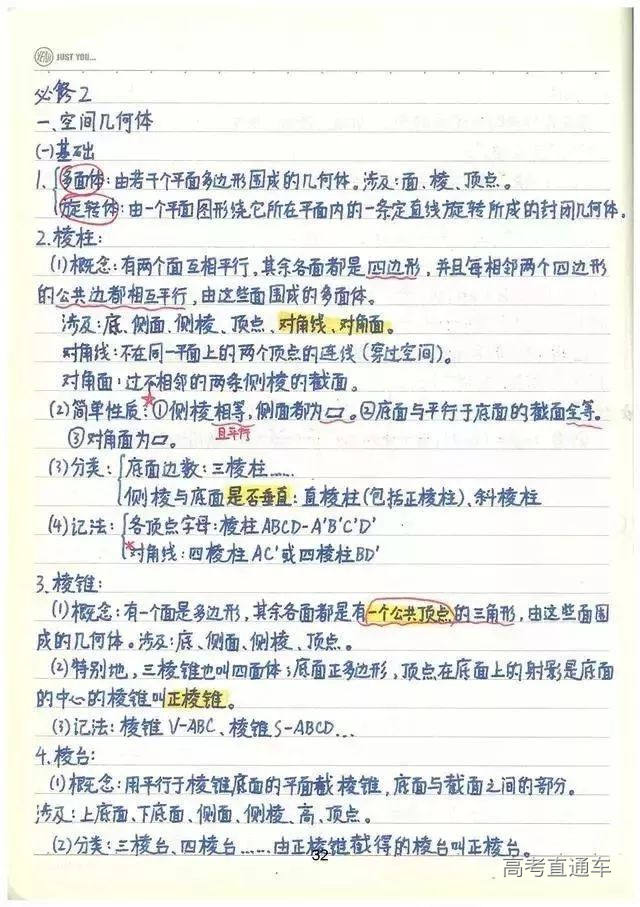 YEAH JUST YOU...
必修2
一、空间几何体
(一)基础
1. 多面体:由若干个平面多边形围成的几何体。涉及:面、棱、顶点。
旋转体:由一个平面图形绕它所在平面内的一条定直线旋转所成的封闭几何体。
2.棱柱:
(1)概念:有两个面互相平行,其余各面都是四边形,并且每相邻两个四边形
的公共边都相互平行,由这些面围成的多面体。
涉及:底、侧面、侧棱、顶点、对角线、对角面。
对角线:不在同一平面上的两个顶点的连线(穿过空间)。
对角面:过不相邻的两条侧棱的截面。
(2)简单性质:①侧棱相等,侧面都为▱。②底面与平行于底面的截面全等。
且平行
③对角面为▱。
(3)分类: 底面边数:三棱柱……
侧棱与底面是否垂直:直棱柱(包括正棱柱)、斜棱柱
(4)记法: 各顶点字母:棱柱ABCD-A'B'C'D'
*对角线:四棱柱AC'或四棱柱BD'
3.棱锥:
(1)概念:有一个面是多边形,其余各面都是有一个公共顶点的三角形,由这些面围
成的几何体。涉及:底、侧面、侧棱、顶点。
(2)特别地,三棱锥也叫四面体;底面正多边形,顶点在底面上的射影是底面
的中心的棱锥叫正棱锥。
(3)记法:棱锥V-ABC、棱锥S-ABCD...
4.棱台:
(1)概念:用平行于棱锥底面的平面截棱锥,底面与截面之间的部分。
涉及:上底面、下底面、侧面、侧棱、高、顶点。
(2)分类:三棱台、四棱台……由正棱锥截得的棱台叫正棱台。
32
高考直通车